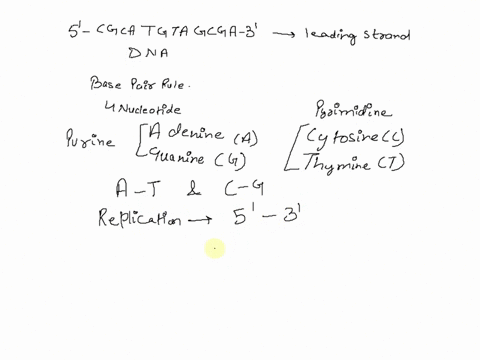 5'- CGCA TGTA GCGA-3' → leading strand
DNA
Base Pair Rule.
4 Nucleotide
Purine [ Adenine (A)
Guanine (G)
Pyrimidine
[ Cytosine (C)
Thymine (T)
A-T & C-G
Replication → 5' - 3'